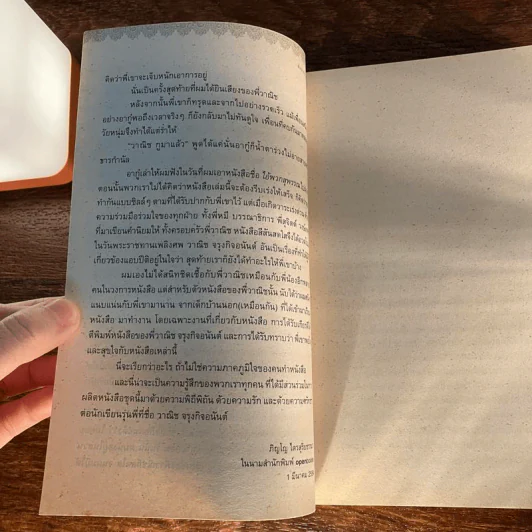 คิดว่าพี่เขาจะเจ็บหนักเอาการอยู่
นั่นเป็นครั้งสุดท้ายที่ผมได้ยินเสียงของพี่วาณิช
หลังจากนั้นพี่เขาก็ทรุดและจากไปอย่างรวดเร็ว
อย่างอากู๋พอถึงเวลาจริงๆ ก็ยังกลับมาไม่ทันดูใจ
วัยหนุ่มจึงทำได้แต่รำไห้
"วาณิช กูมาแล้ว" พูดได้แค่นั้นอากู๋ก็น้ำตาร่วง
ธารกำนัล
อากู๋เล่าให้ผมฟังในวันที่ผมเอาหนังสือชื่อ
ตอนนั้นพวกเราไม่ได้คิดว่าหนังสือเล่มนี้จะต้องรีบเร่งให้เสร็จ
ทำกันแบบชิลล์ๆ ตามที่ได้รับปากกับพี่เขาไว้ แต่เมื่อเกิดวาระเร่งด่วน
ความร่วมมือร่วมใจของทุกฝ่าย ทั้งพี่หมี บรรณาธิการ
ที่มาเขียนคำนิยมให้ ทั้งครอบครัวพี่วาณิช
ในวันพระราชทานเพลิงศพ วาณิช จรุงกิจอนันต์ อันเป็นเรื่องที่
สุดท้ายเราก็ยังได้ทำอะไรให้พี่เขาบ้าง
ผมเองไม่ได้สนิทชิดเชื้อกับพี่วาณิชเหมือนกับพี่น้อง
คนในวงการหนังสือ แต่สำหรับตัวหนังสือของพี่วาณิชนั้น
แนบแน่นกับพี่เขามานาน จากเด็กบ้านนอก(เหมือนกัน)
หนังสือ มาทำงาน โดยเฉพาะงานที่เกี่ยวกับหนังสือ
ตีพิมพ์หนังสือของพี่วาณิช จรุงกิจอนันต์ และการได้รับทราบว่า
และสุขใจกับหนังสือเหล่านี้
นี่จะเรียกว่าอะไร ถ้าไม่ใช่ความภาคภูมิใจของคนทำหนังสือ
และนี่น่าจะเป็นความรู้สึกของพวกเราทุกคน ที่ได้มีส่วนร่วมใน
ผลิตหนังสือชุดนี้มาด้วยความพิถีพิถัน ด้วยความรัก และด้วยความ
ต่อนักเขียนรุ่นพี่ที่ชื่อ วาณิช จรุงกิจอนันต์
ภิญโญ
ในนามสำนักพิมพ์
1 มีนาคม